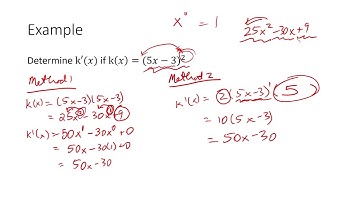 Example
x⁰ = 1
25x² - 30x + 9
Determine k′(x) if k(x) = (5x − 3)²
Method 1
k(x) = (5x-3)(5x-3)
= 25x² - 30x¹ + 9
k'(x) = 50x¹ - 30x⁰ + 0
= 50x - 30(1) + 0
= 50x - 30
Method 2
k'(x) = 2(5x-3)¹(5)
= 10(5x-3)
= 50x - 30